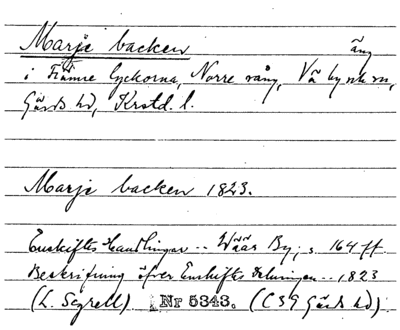 Marje backen äng
i Främre Lyckorna, Norre vång, Vä by nr 11,
Gärds hd, Krstd. l.
Marje backen 1823.
Enskiftes Handlingar .. Wääs By, s. 164 ff
Beskrifning öfver Enskiftes Delningen .. 1823
(L. Segrell) Nr 5343. (CSG Gärds hd)